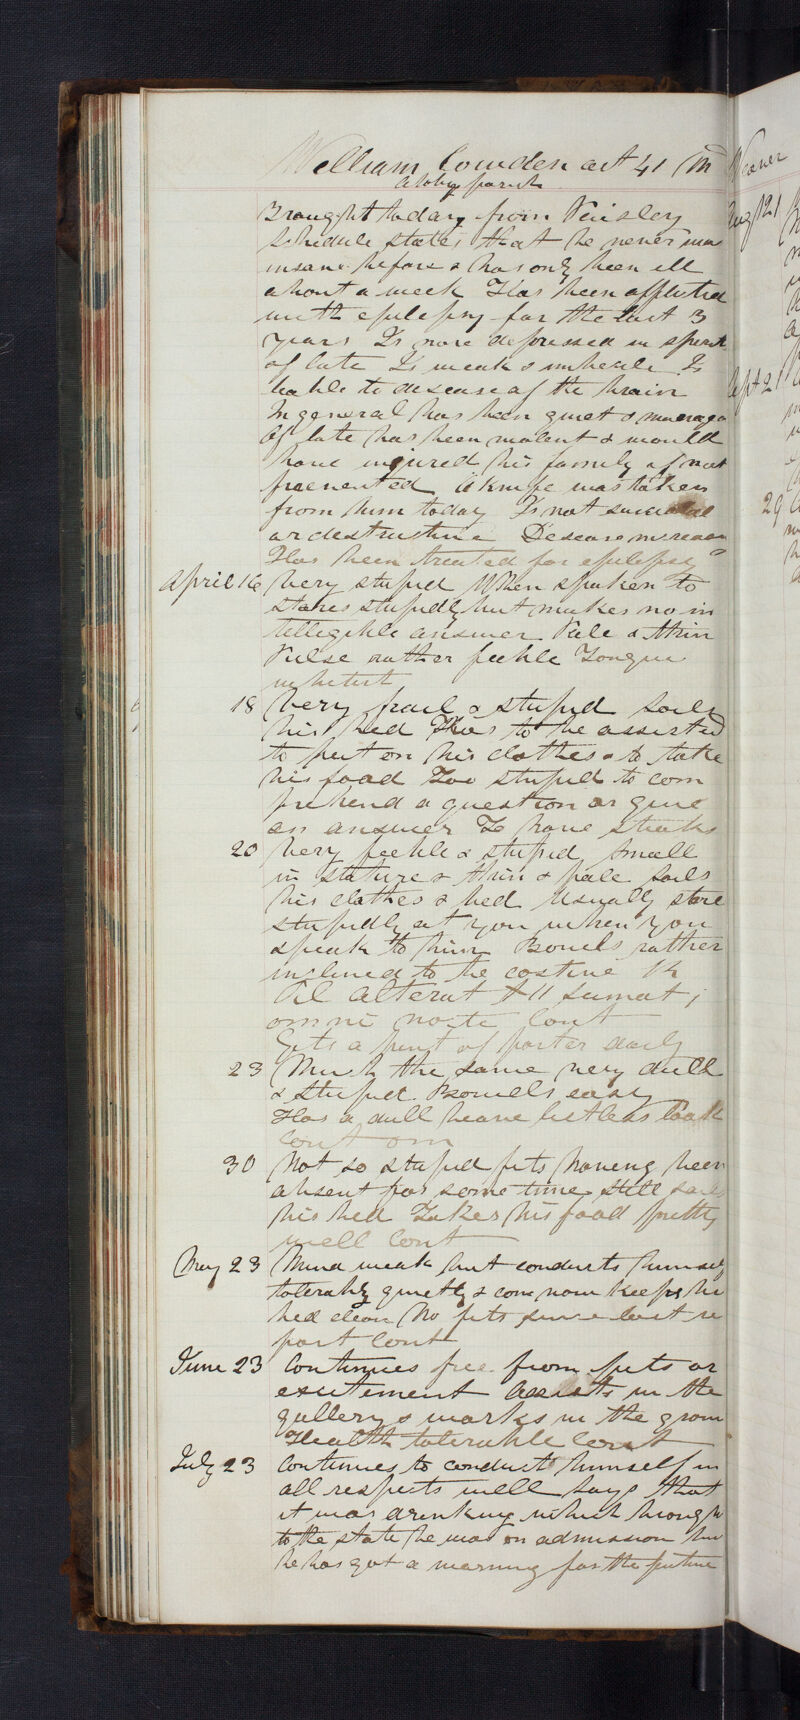 William Cowden aet 41 M
Abbey parish
Brought today from Paisley
Schedule states that he never was
insane before & has only been ill
about a week Has been afflicted
with epilepsy for the last 3
years Is more depressed in spirit
of late Is weak & imbecile Is
liable to disease of the brain
In general has been quiet &
Of late has been violent & would
have injured his family if not
prevented A knife was taken
from him today Is not suicidal
or destructive Disease
Has been treated for epilepsy
April 16 Very stupid When spoken to
stares stupidly but makes no in
telligible answer Pale & thin
Pulse rather feeble Tongue
whitish
18 Very frail & stupid Soils
his bed Has to be assisted
to put on his clothes & to take
his food Too stupid to com
prehend a question or give
an answer To have steaks
20 Very feeble & stupid Small
in stature & thin & pale Soils
his clothes & bed Usually stare
stupidly at you when you
speak to him Bowels rather
inclined to be costive R
Pil Alterat II sumat j
omni nocte Cont
Gets a pint of porter daily
23 Much the same very dull
& stupid Bowels easy
Has a dull heavy listless look
Cont om
30 Not so stupid fits having been
absent for some time Still soils
his bed Takes his food pretty
well Cont
May 23 Mind weak but conducts himself
tolerably quietly & can now keeps his
bed clean No fits since last re
port Cont
June 23 Continues free from fits or
excitement Assists in the
gallery & works in the groun
Health tolerable Cont
July 23 Continues to conducts himself in
all respects well Says that
it was drinking which brought
to the state he was on admission but
he has got a warning for the future
Weaver
Aug 21
Sept 21
29